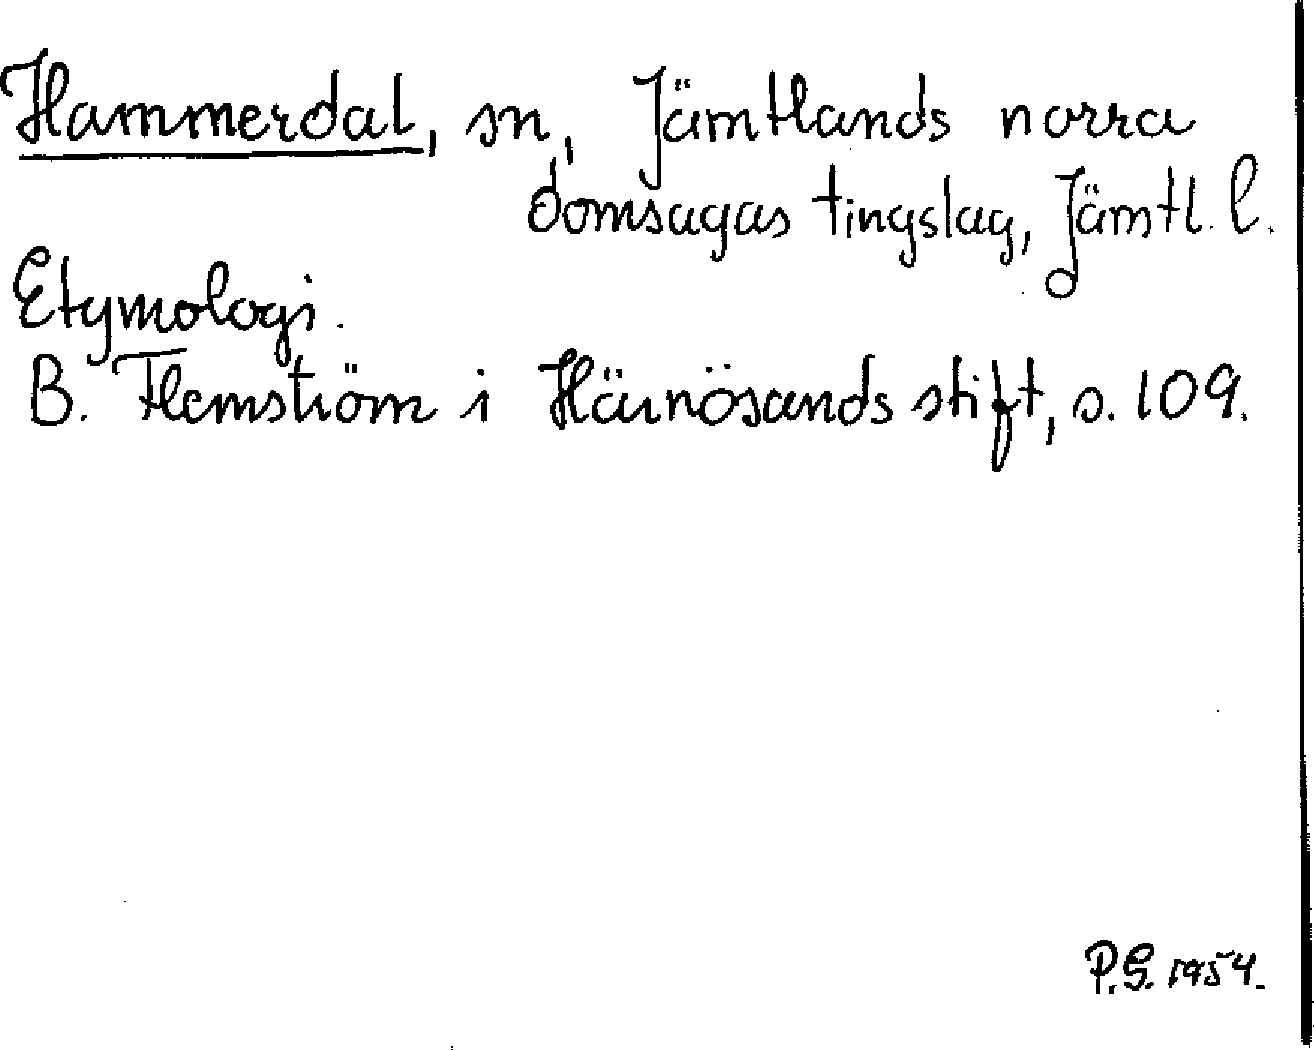 Hammerdal, sn, Jämtlands norra
domsagas tingslag, Jämtl. l.
Etymologi.
B. Flemström i Härnösands stift, s. 109.
P.G. 1954.